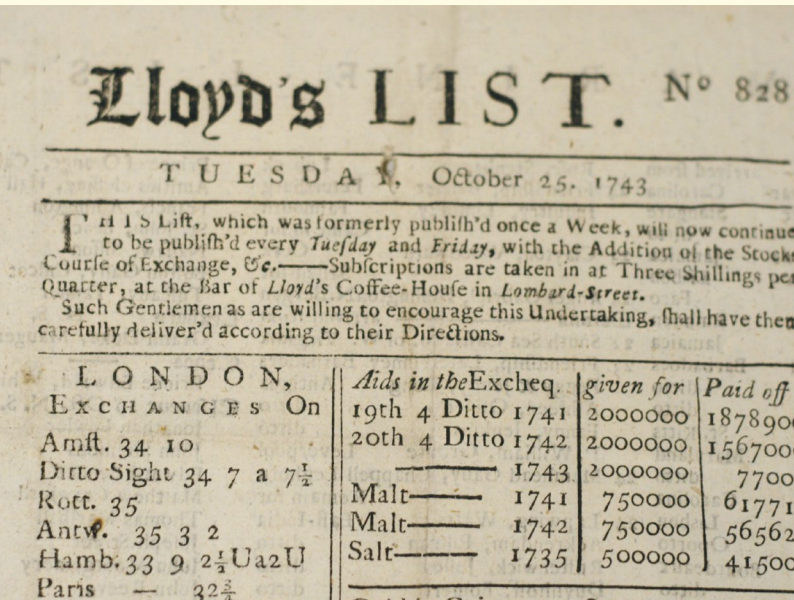 Lloyd's LIST. No 828
TUESDAY, October 25. 1743
THIS Liſt, which was formerly publiſh'd once a Week, will now continue
to be publiſh'd every Tueſday and Friday, with the Addition of the Stocks
Courſe of Exchange, &c.——Subſcriptions are taken in at Three Shillings per
Quarter, at the Bar of Lloyd's Coffee-Houſe in Lombard-Street.
Such Gentlemen as are willing to encourage this Undertaking, ſhall have them
carefully deliver'd according to their Directions.
LONDON,
EXCHANGES On
Amſt. 34 10
Ditto Sight 34 7 a 7½
Rott. 35
Antw. 35 3 2
Hamb. 33 9 2½ Ua2U
Paris — 32¾
Aids in the Excheq. given for Paid off
19th 4 Ditto 1741 2000000 187890
20th 4 Ditto 1742 2000000 156700
—— 1743 2000000 7700
Malt—— 1741 750000 61771
Malt—— 1742 750000 56562
Salt—— 1735 500000 41500